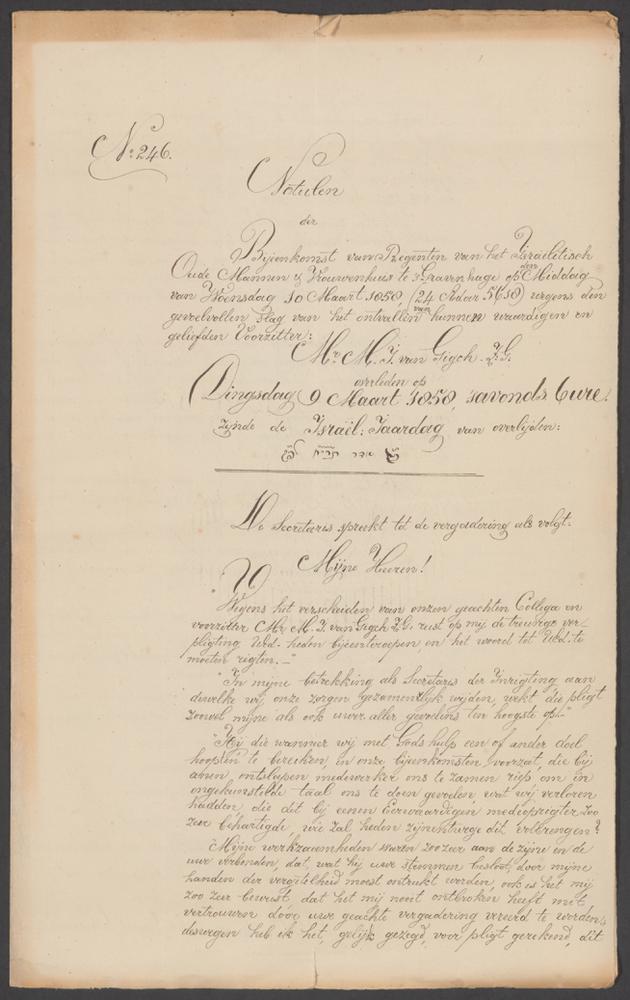 No. 246.
Notulen
der
Bijeenkomst van Regenten van het Israëlitisch
Oude Mannen & Vrouwenhuis te 's Gravenhage op den Middag
van Woensdag 10 Maart 1858, (24 Adar 5618) wegens den
gevoelvollen slag van het ontvallen van hunnen waardigen en
geliefden Voorzitter:
Mr. M. J. van Gigch. Z.G.
overleden op
Dingsdag 9 Maart 1858, 's avonds 6 ure.
zijnde de Israël: Jaardag van overlijden:
אדר תרי״ח לפ״ק
De Secretaris spreekt tot de vergadering als volgt.
Mijne Heeren!
Wegens het verscheiden van onzen geachten Collega en
voorzitter Mr. M. J. van Gigch Z.G. rust op mij de treurige ver-
pligting Ued. heden bijeenteroepen en het woord tot Ued. te
moeten rigten. —"
"In mijne betrekking als Secretaris der Inrigting aan
dewelke wij onze zorgen gezamentlijk wijden, wekt die pligt
zoowel mijne als ook uwer aller gevoelens ten hoogste op."
"Hij die wanneer wij met Gods hulp een of ander doel
hoopten te bereiken, in onze bijeenkomsten voorzat, die bij
ontslapen medewerker ons te zamen riep om in
ongekunstelde taal ons te doen gevoelen wat wij verloren
hadden, die dit bij eenen Eerwaardigen medeoprigter zoo
zeer behartigde, wie zal heden zijnenthwege dit volbrengen?
"Mijne werkzaamheden waren zoo zeer aan de zijne en de
uwe verbonden, dat, wat hij uwe stemmen besloot, door mijne
handen der vergetelheid moest ontrukt worden, ook is het mij
zoo zeer bewust, dat het mij nooit ontbroken heeft met
vertrouwen door uwe geachte vergadering vereerd te worden,
deswegen heb ik het, gelijk gezegd, voor pligt gerekend, dit